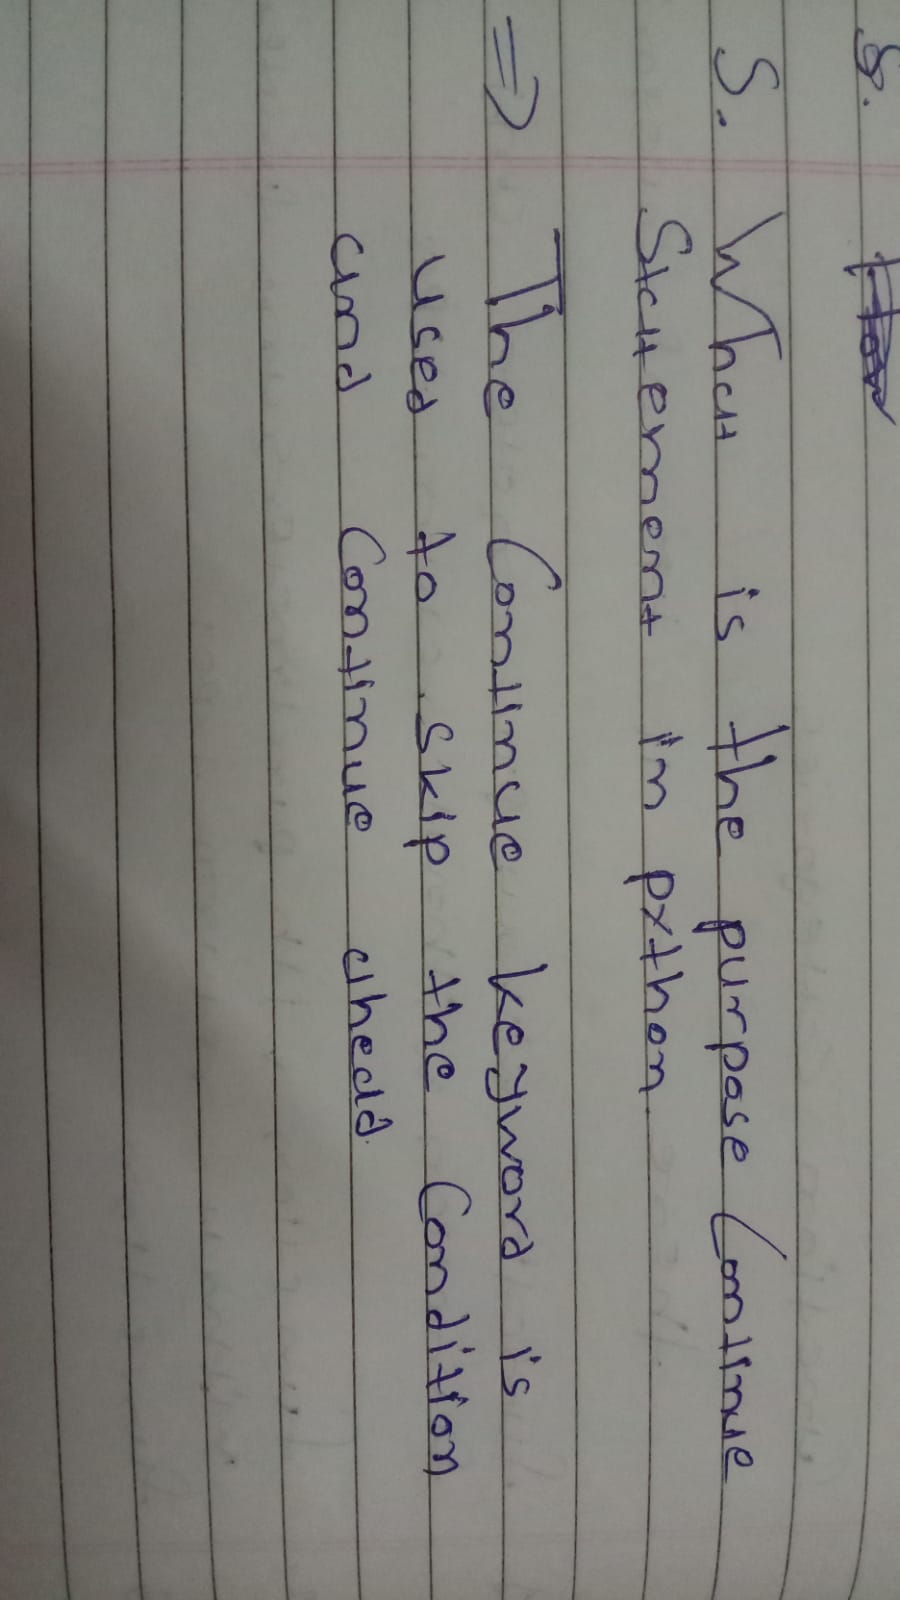 8.
5. What is the purpose Continue
Statement in python
⇒ The Continue keyword is
used to skip the Condition
and Continue ahead.